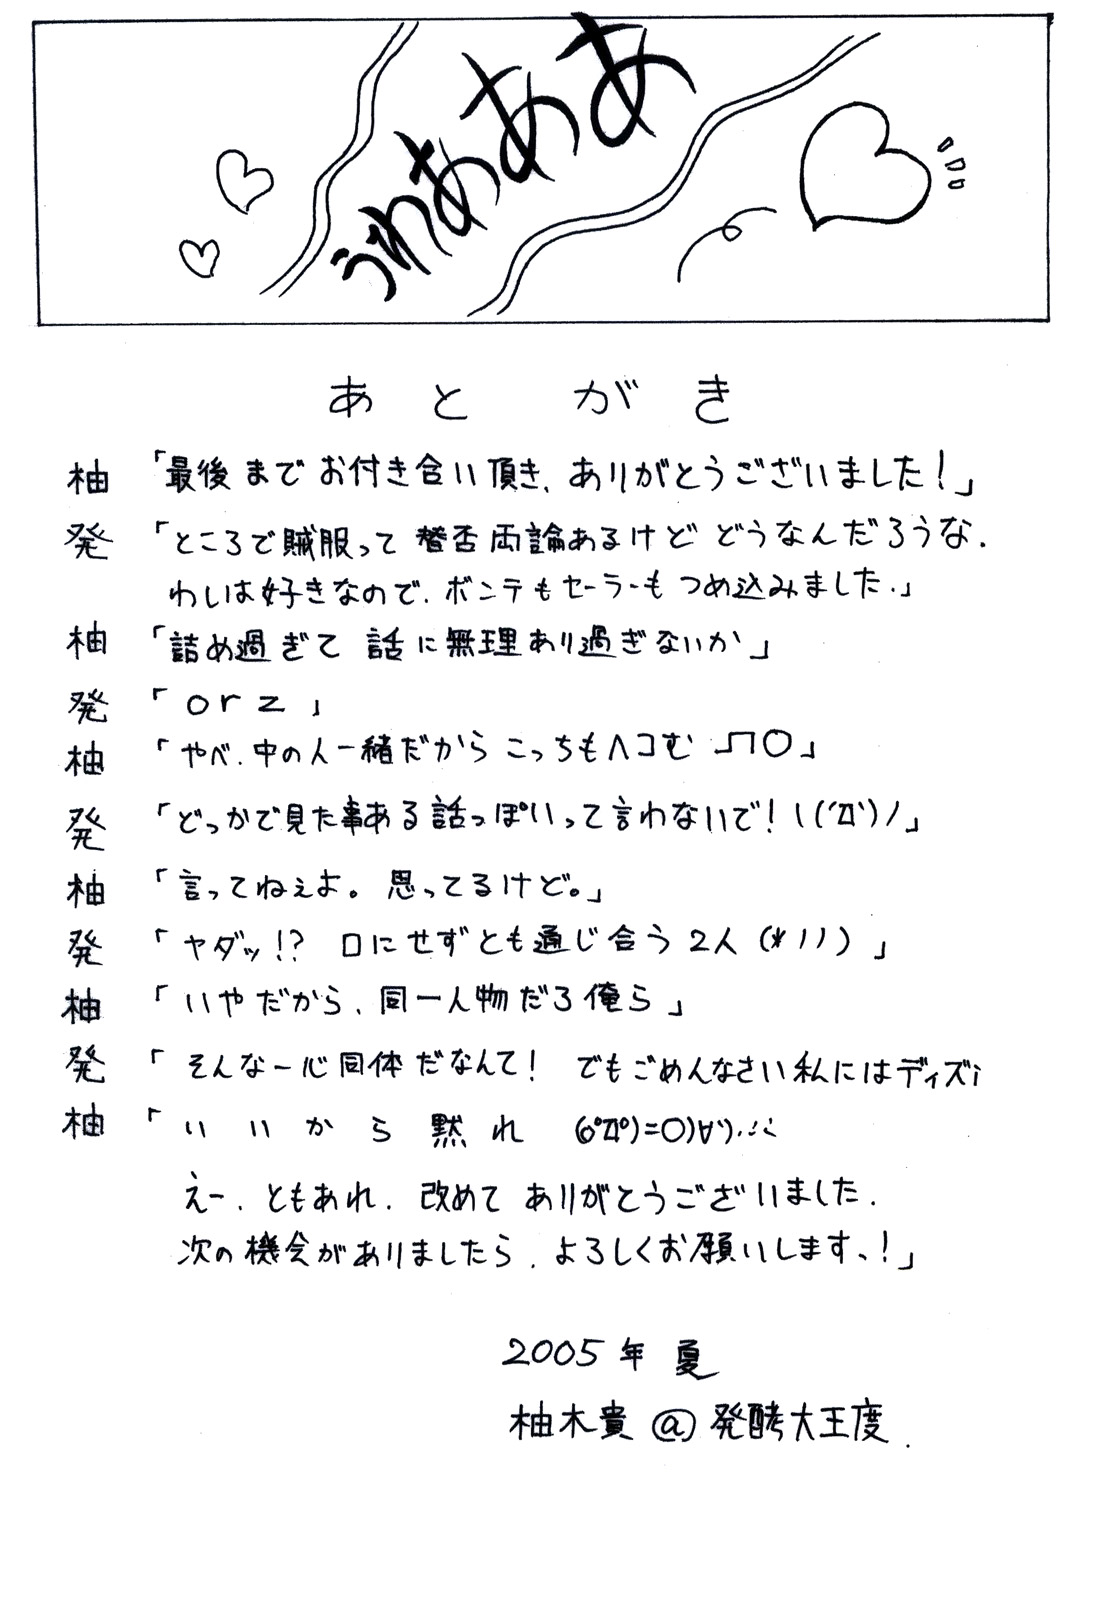 うわあああ
あとがき
柚「最後までお付き合い頂き、ありがとうございました!」
発「ところで賊服って賛否両論あるけどどうなんだろうな.
わしは好きなので.ボンテもセーラーもつめ込みました.」
柚「詰め過ぎて話に無理あり過ぎないか」
発「orz」
柚「やべ.中の人一緒だからこっちもヘコむ _| ̄|○」
発「どっかで見た事ある話っぽいって言わないで!ヽ(´Д`)ノ」
柚「言ってねぇよ。思ってるけど。」
発「ヤダッ!? 口にせずとも通じ合う2人(*ノノ)」
柚「いやだから、同一人物だろ俺ら」
発「そんな一心同体だなんて! でもごめんなさい私にはディズi
柚「いいから黙れ (o゚Д゚)=○)∀`).∴
えー.ともあれ.改めてありがとうございました.
次の機会がありましたら.よろしくお願いします、!」
2005年夏
柚木貴@発酵大王度.